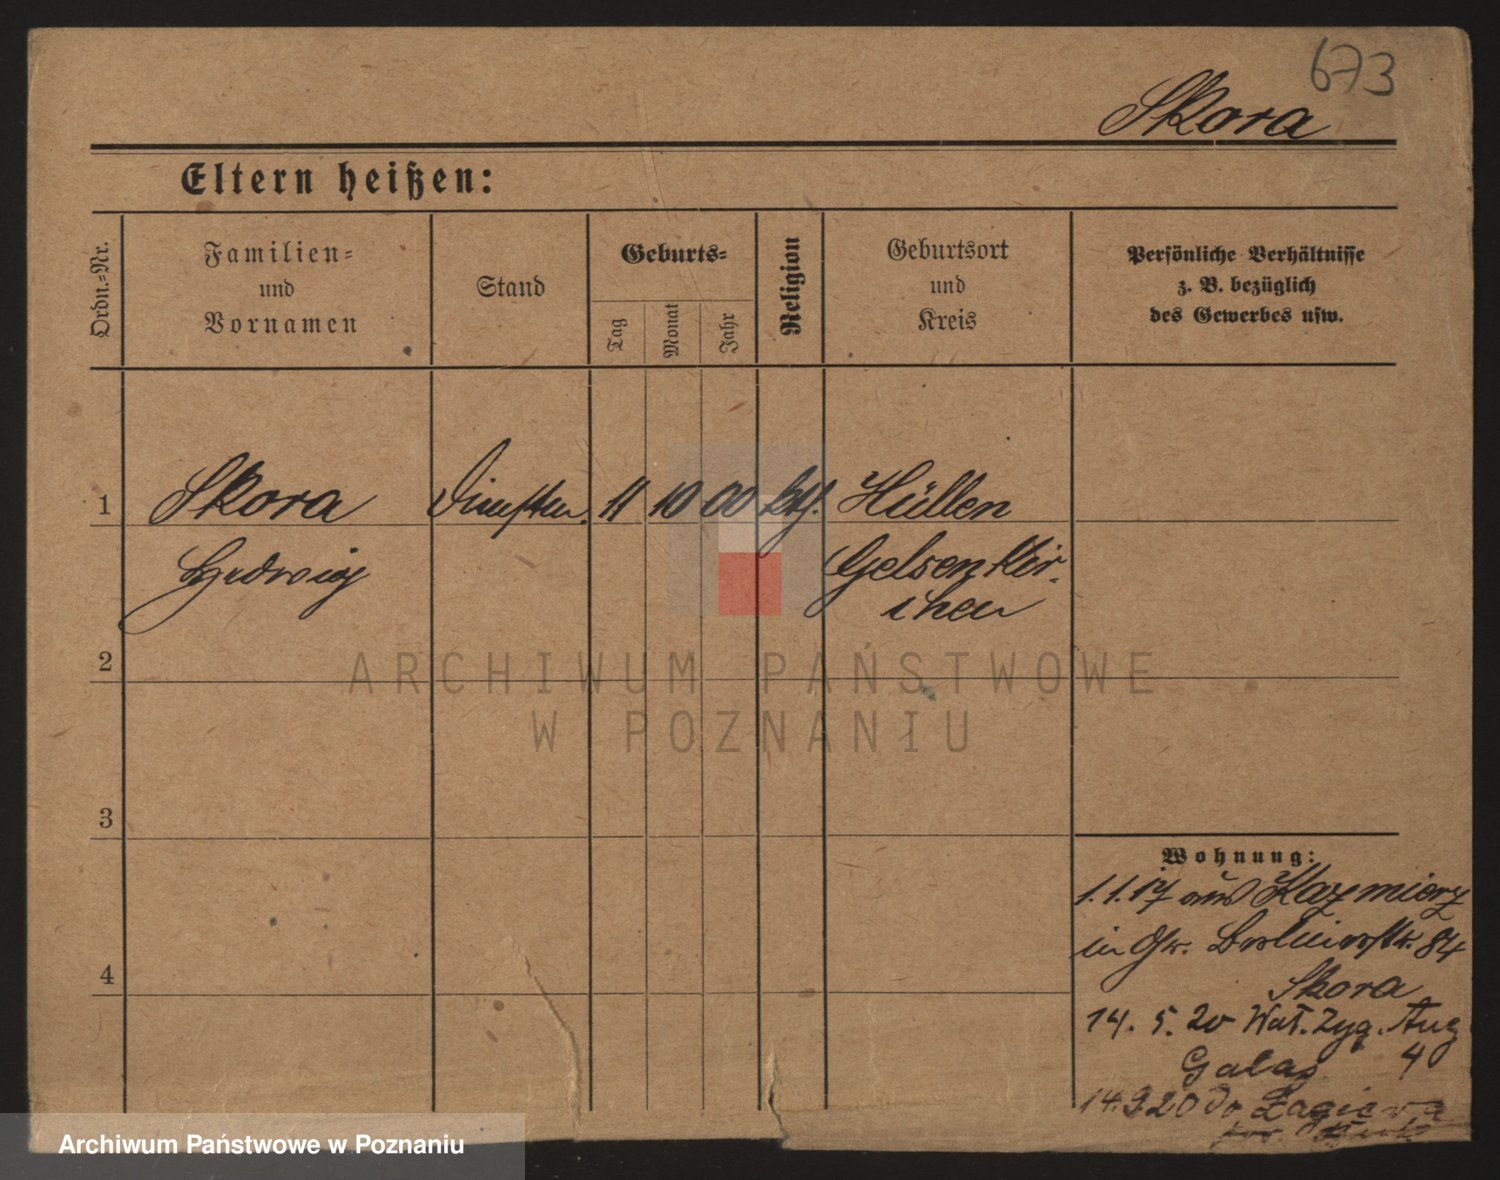 673
Skora
Eltern heißen:
Ordn.-Nr.
Familien-
und
Vornamen
Stand
Geburts-
Tag
Monat
Jahr
Religion
Geburtsort
und
Kreis
Persönliche Verhältnisse
z. B. bezüglich
des Gewerbes usw.
1 Skora 11 10 00 kth. Hüllen
Hedwig Gelsenkir-
chen
2
3
4
Wohnung:
1.1.17 aus Kazmierz
in Gr. 84
Skora
14. 5. 20 Wał. Zyg. Aug
Galas 4
14.9.20 do Łagiewa
ARCHIWUM PAŃSTWOWE
W POZNANIU
Archiwum Państwowe w Poznaniu